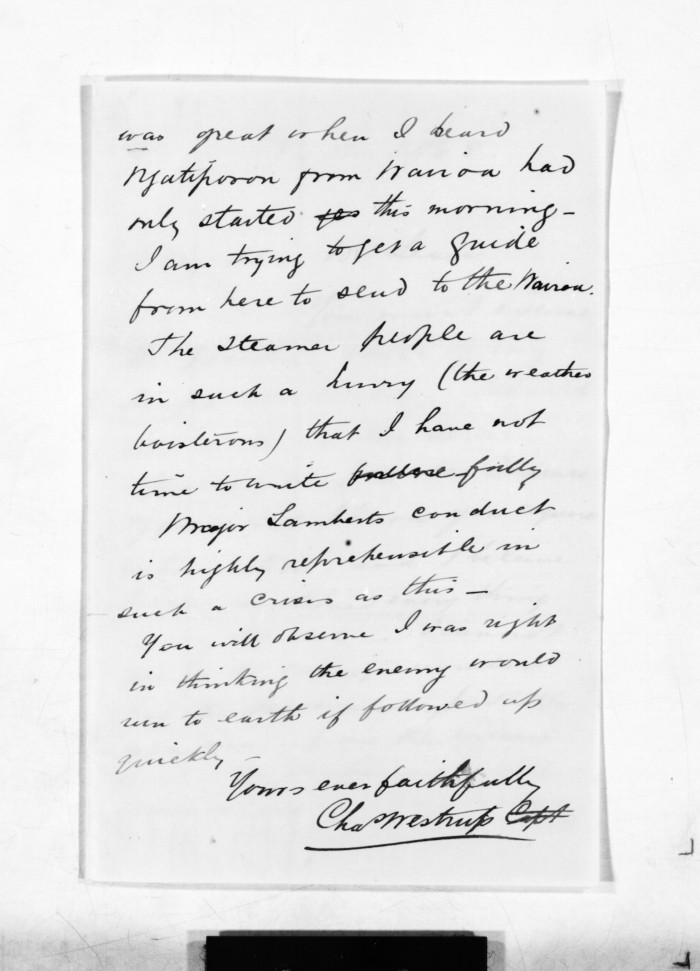 was great when I heard
Ngatiporou from Wairoa had
only started this morning -
I am trying to get a guide
from here to send to the Wairoa.
The Steamer people are
in such a hurry (the weather
boisterous) that I have not
time to write fully
Major Lamberts conduct
is highly reprehensible in
such a crisis as this -
You will observe I was right
in thinking the enemy would
run to earth if followed up
quickly -
Yours ever faithfully
Chas Westrup Capt